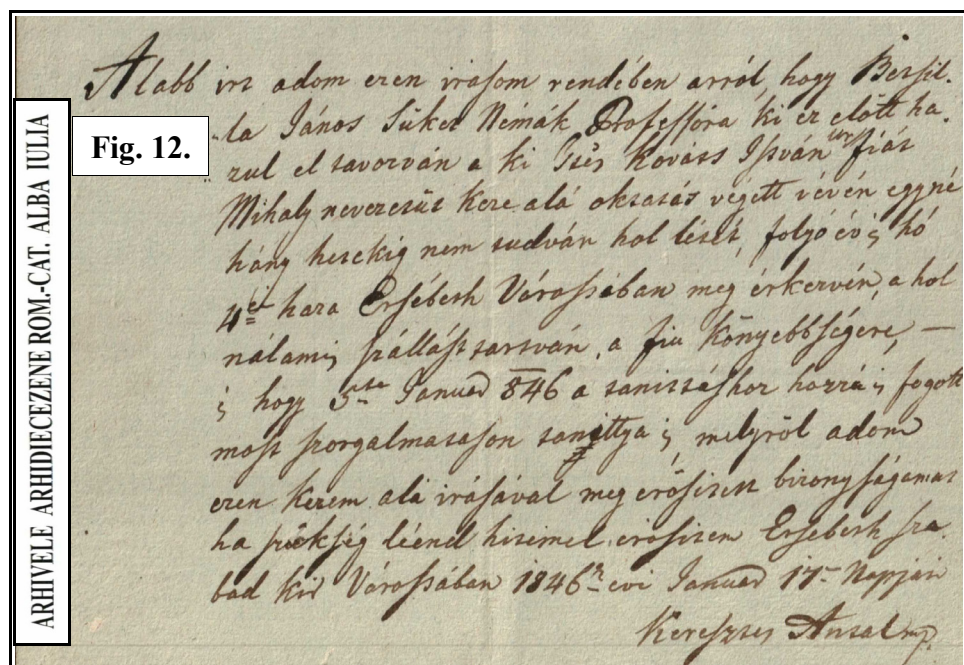 Fig. 12.
ARHIVELE ARHIDECEZENE ROM.-CAT. ALBA IULIA
Alabb irt adom ezen irásom rendében arról, hogy Beszil-
la János Süket Némák Professóra ki ez előtt ha-
zul el távozván a ki Kováss István úr fiát
Mihaly nevezetüt keze alá oktatás végett vévén egyné
hány hetekig nem tudván hol létét, folyó évi hó
4én haza Ersébeth Várossában meg érkezvén, a hol
nálami szállást tartván, a fiu könyebbségére, —
s hogy 5ta Januar 846 a tanittáshoz hozzá is fogott
most szorgalmatason tanittya is, melyröl adom
ezen kezem alá irásával meg erősitett bizonyságamat
ha szükség léend hitemel erösitem Ersebeth sza-
bad kir Várossában 1846 evi Januar 17 Napján
Keresztes Antal mp.